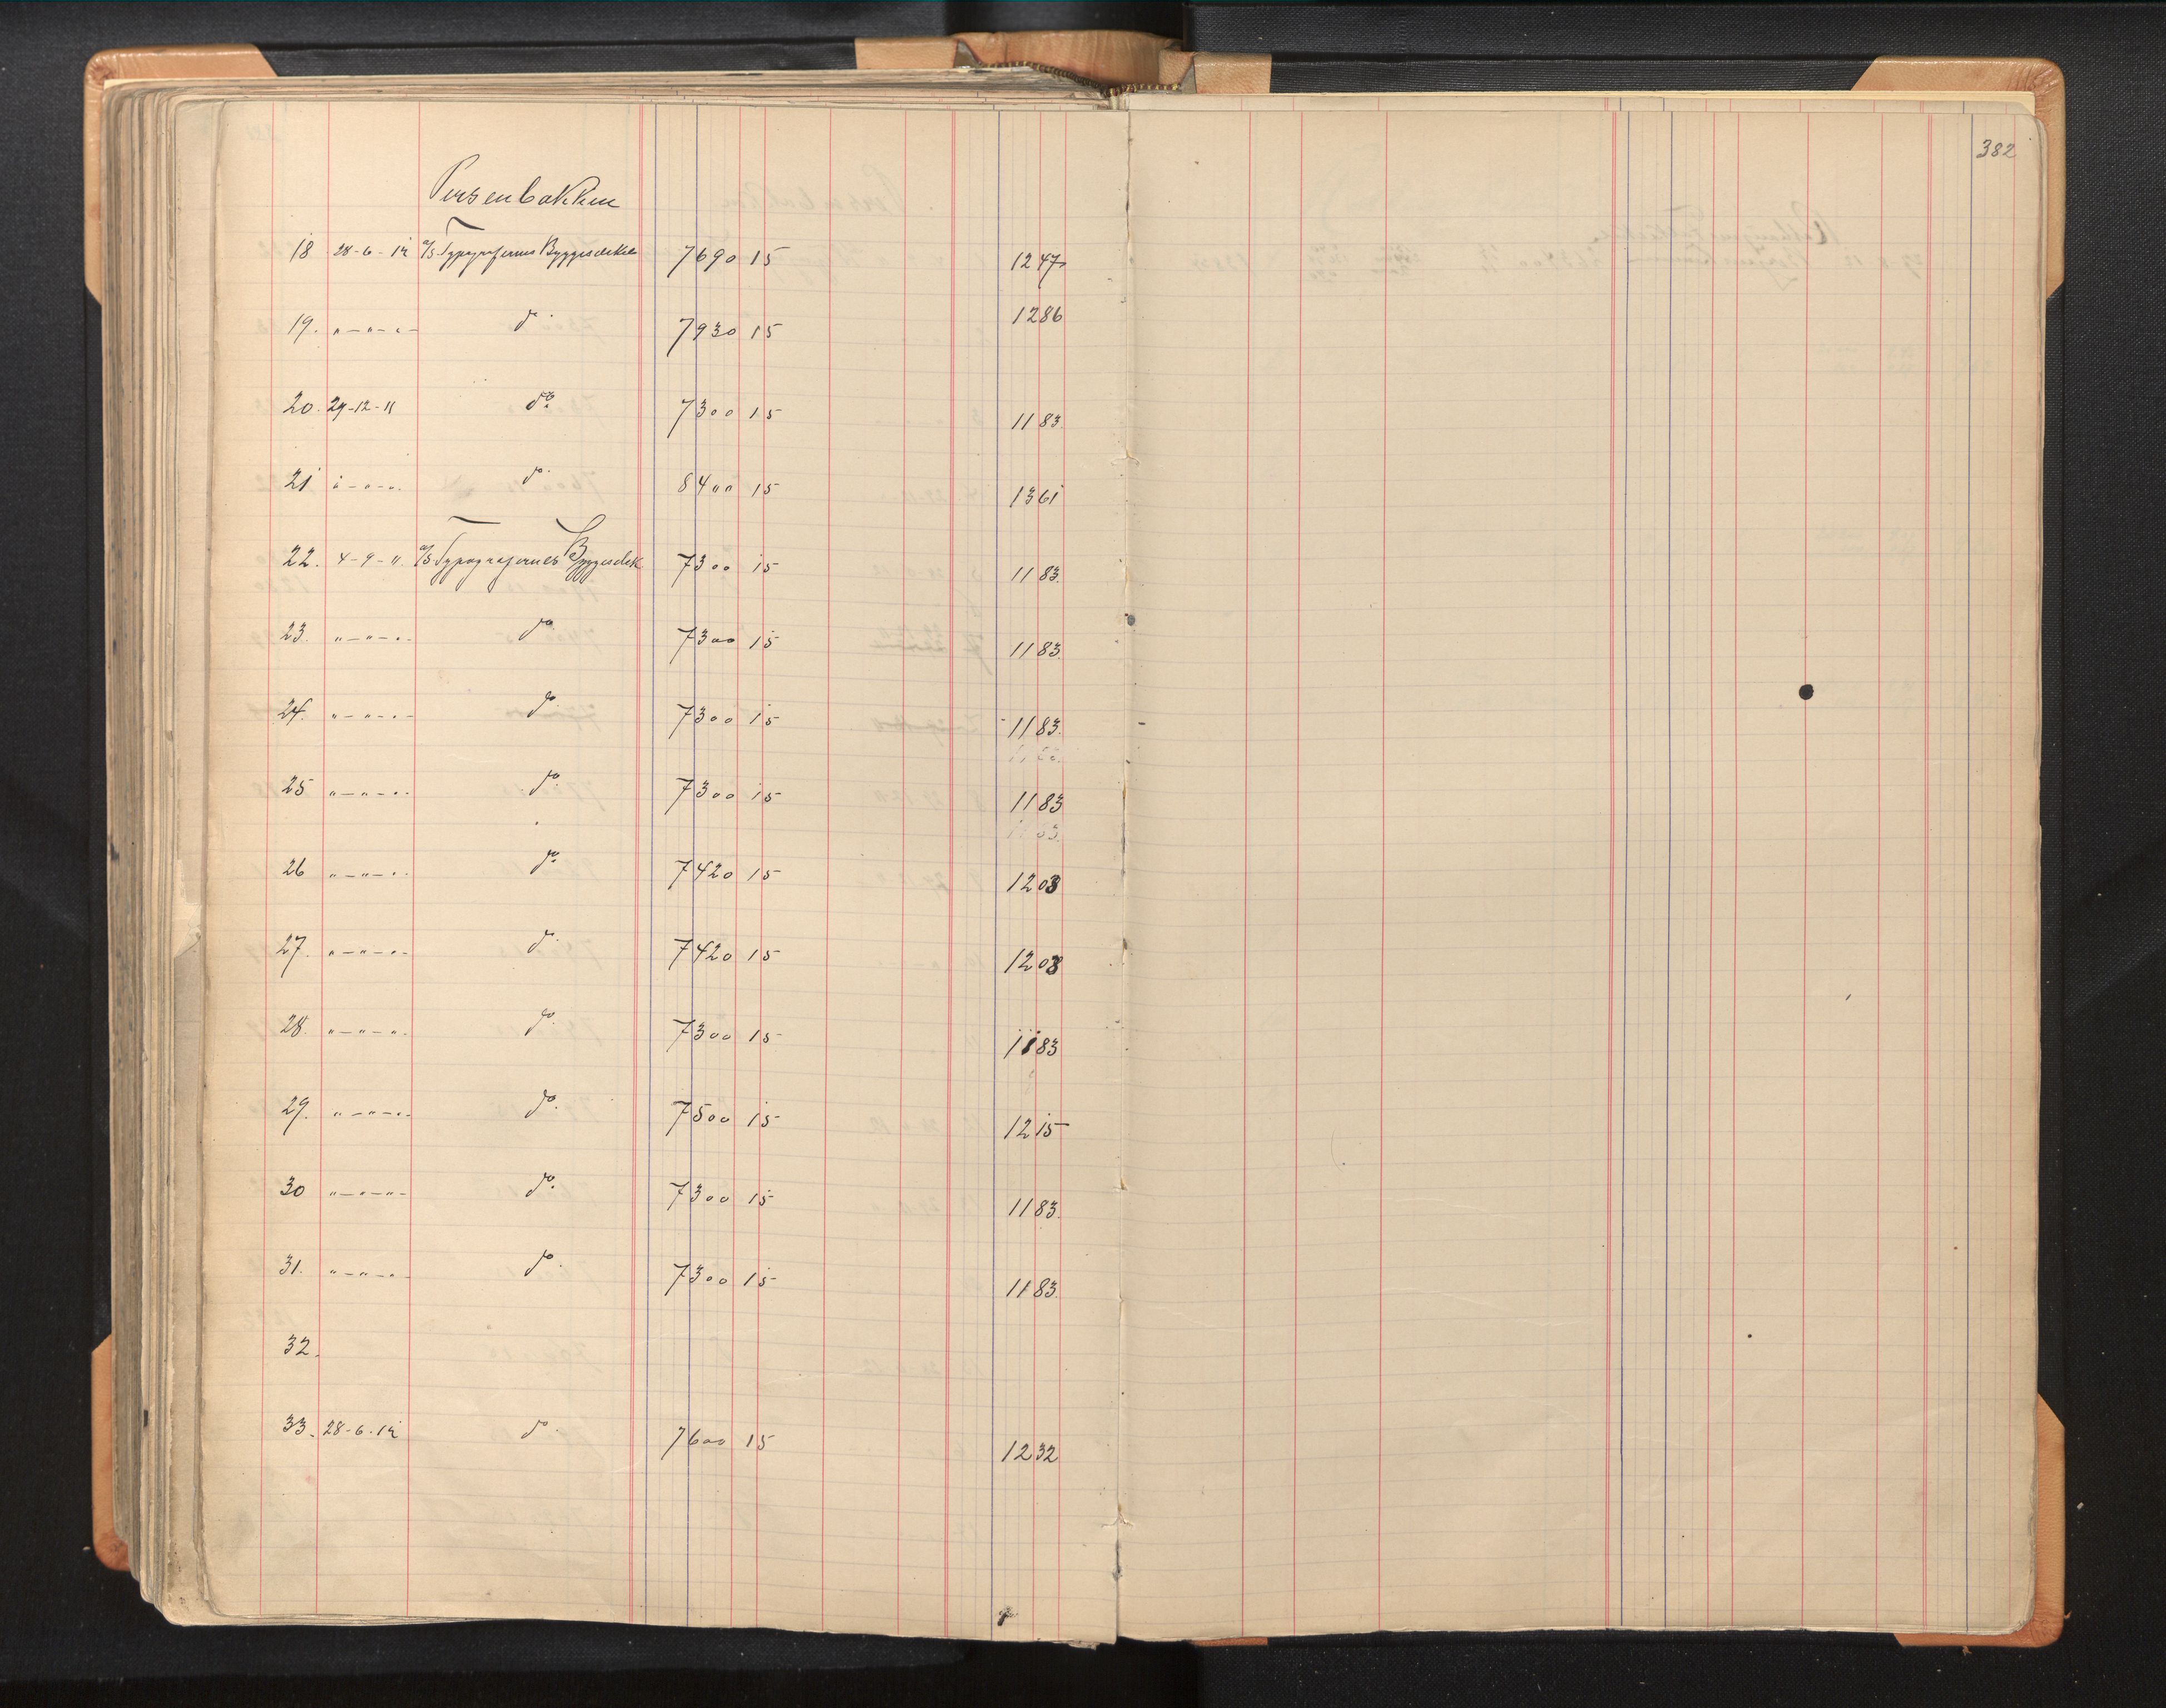 382
Persenbakken
18 28-6-12 A/S Typografernes Byggeselsk 7690 15 1247
19. "-"-"- do 7930 15 1286
20. 29-12-11 do 7300 15 1183
21 "-"-". do 8400 15 1361
22. 4-9-11. A/S Typografernes Byggeselsk 7300 15 1183.
23. "-"-". do 7300 15 1183.
24. "-"-"- do 7300 15 1183.
25 "-"-". do. 7300 15 1183
26 "-"-". do. 7420 15 1203
27. "-"-"- do. 7420 15 1203
28. "-"-"- do. 7300 15 1183
29. "-"-"- do. 7500 15 1215
30 "-"-"- do. 7300 15 1183.
31. "-"-"- do. 7300 15 1183.
32.
33. 28-6-12 do. 7600 15 1232